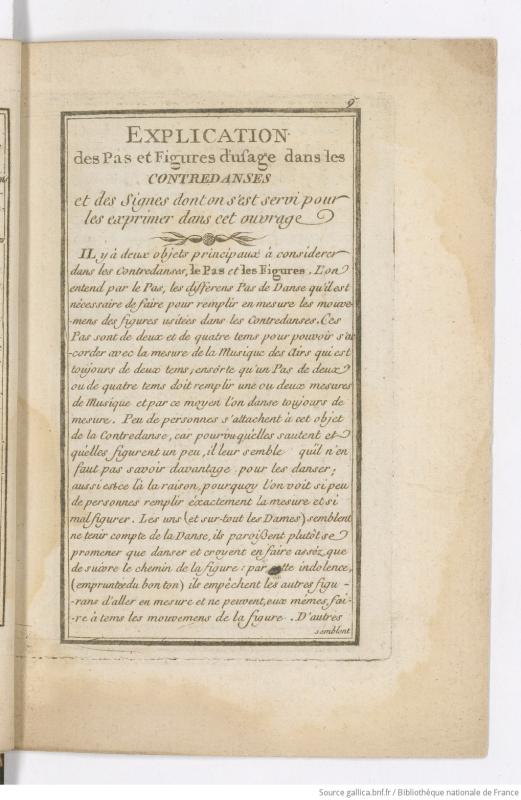 9
EXPLICATION
des Pas et Figures d'usage dans les
CONTREDANSES
et des Signes dont on s'est servi pour
les exprimer dans cet ouvrage
IL y à deux objets principaux à considerer
dans les Contredanses, le Pas et les Figures. L'on
entend par le Pas, les différens Pas de Danse qu'il est
nécessaire de faire pour remplir en mesure les mouve-
-mens des figures usitées dans les Contredanses. Ces
Pas sont de deux et de quatre tems pour pouvoir s'ac
-corder avec la mesure de la Musique des Airs qui est
toujours de deux tems; ensórte qu'un Pas de deux
ou de quatre tems doit remplir une ou deux mesures
de Musique et par ce moyen l'on danse toujours de
mesure. Peu de personnes s'attachent à cet objet
de la Contredanse, car pourvu qu'elles sautent et
qu'elles figurent un peu, il leur semble qu'il n'en
faut pas savoir davantage pour les danser;
aussi est-ce là la raison, pourquoy l'on voit si peu
de personnes remplir éxactement la mesure et si
mal figurer. Les uns (et sur-tout les Dames) semblent
ne tenir compte de la Danse, ils paroißent plutôt se
promener que danser et croyent en faire asséz que
de suivre le chemin de la figure: par cette indolence,
(empruntée du bon ton) ils empêchent les autres figu-
-rans d'aller en mesure et ne peuvent, eux mêmes, fai-
-re à tems les mouvemens de la figure. D'autres
semblent
Source gallica.bnf.fr / Bibliothèque nationale de France